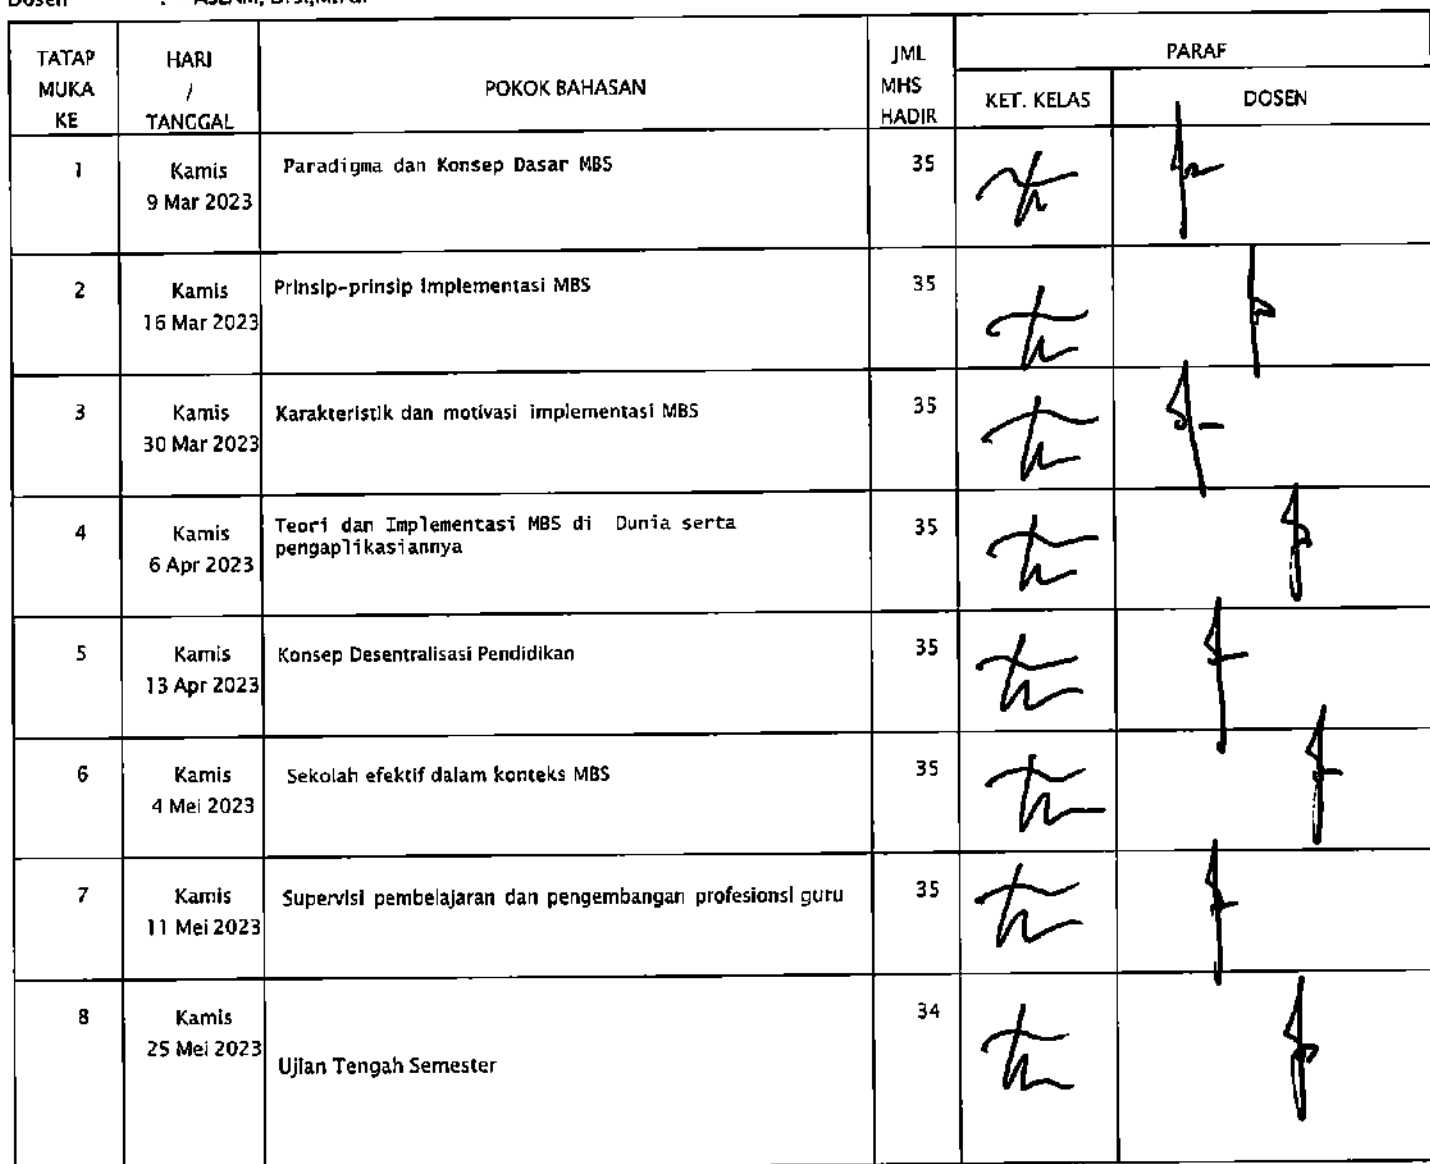 Dosen :
TATAP MUKA KE HARI / TANGGAL POKOK BAHASAN JML MHS HADIR PARAF
KET. KELAS DOSEN
1 Kamis 9 Mar 2023 Paradigma dan Konsep Dasar MBS 35
2 Kamis 16 Mar 2023 Prinsip-prinsip implementasi MBS 35
3 Kamis 30 Mar 2023 Karakteristik dan motivasi implementasi MBS 35
4 Kamis 6 Apr 2023 Teori dan Implementasi MBS di Dunia serta
pengaplikasiannya 35
5 Kamis 13 Apr 2023 Konsep Desentralisasi Pendidikan 35
6 Kamis 4 Mei 2023 Sekolah efektif dalam konteks MBS 35
7 Kamis 11 Mei 2023 Supervisi pembelajaran dan pengembangan profesionsi guru 35
8 Kamis 25 Mei 2023 Ujian Tengah Semester 34